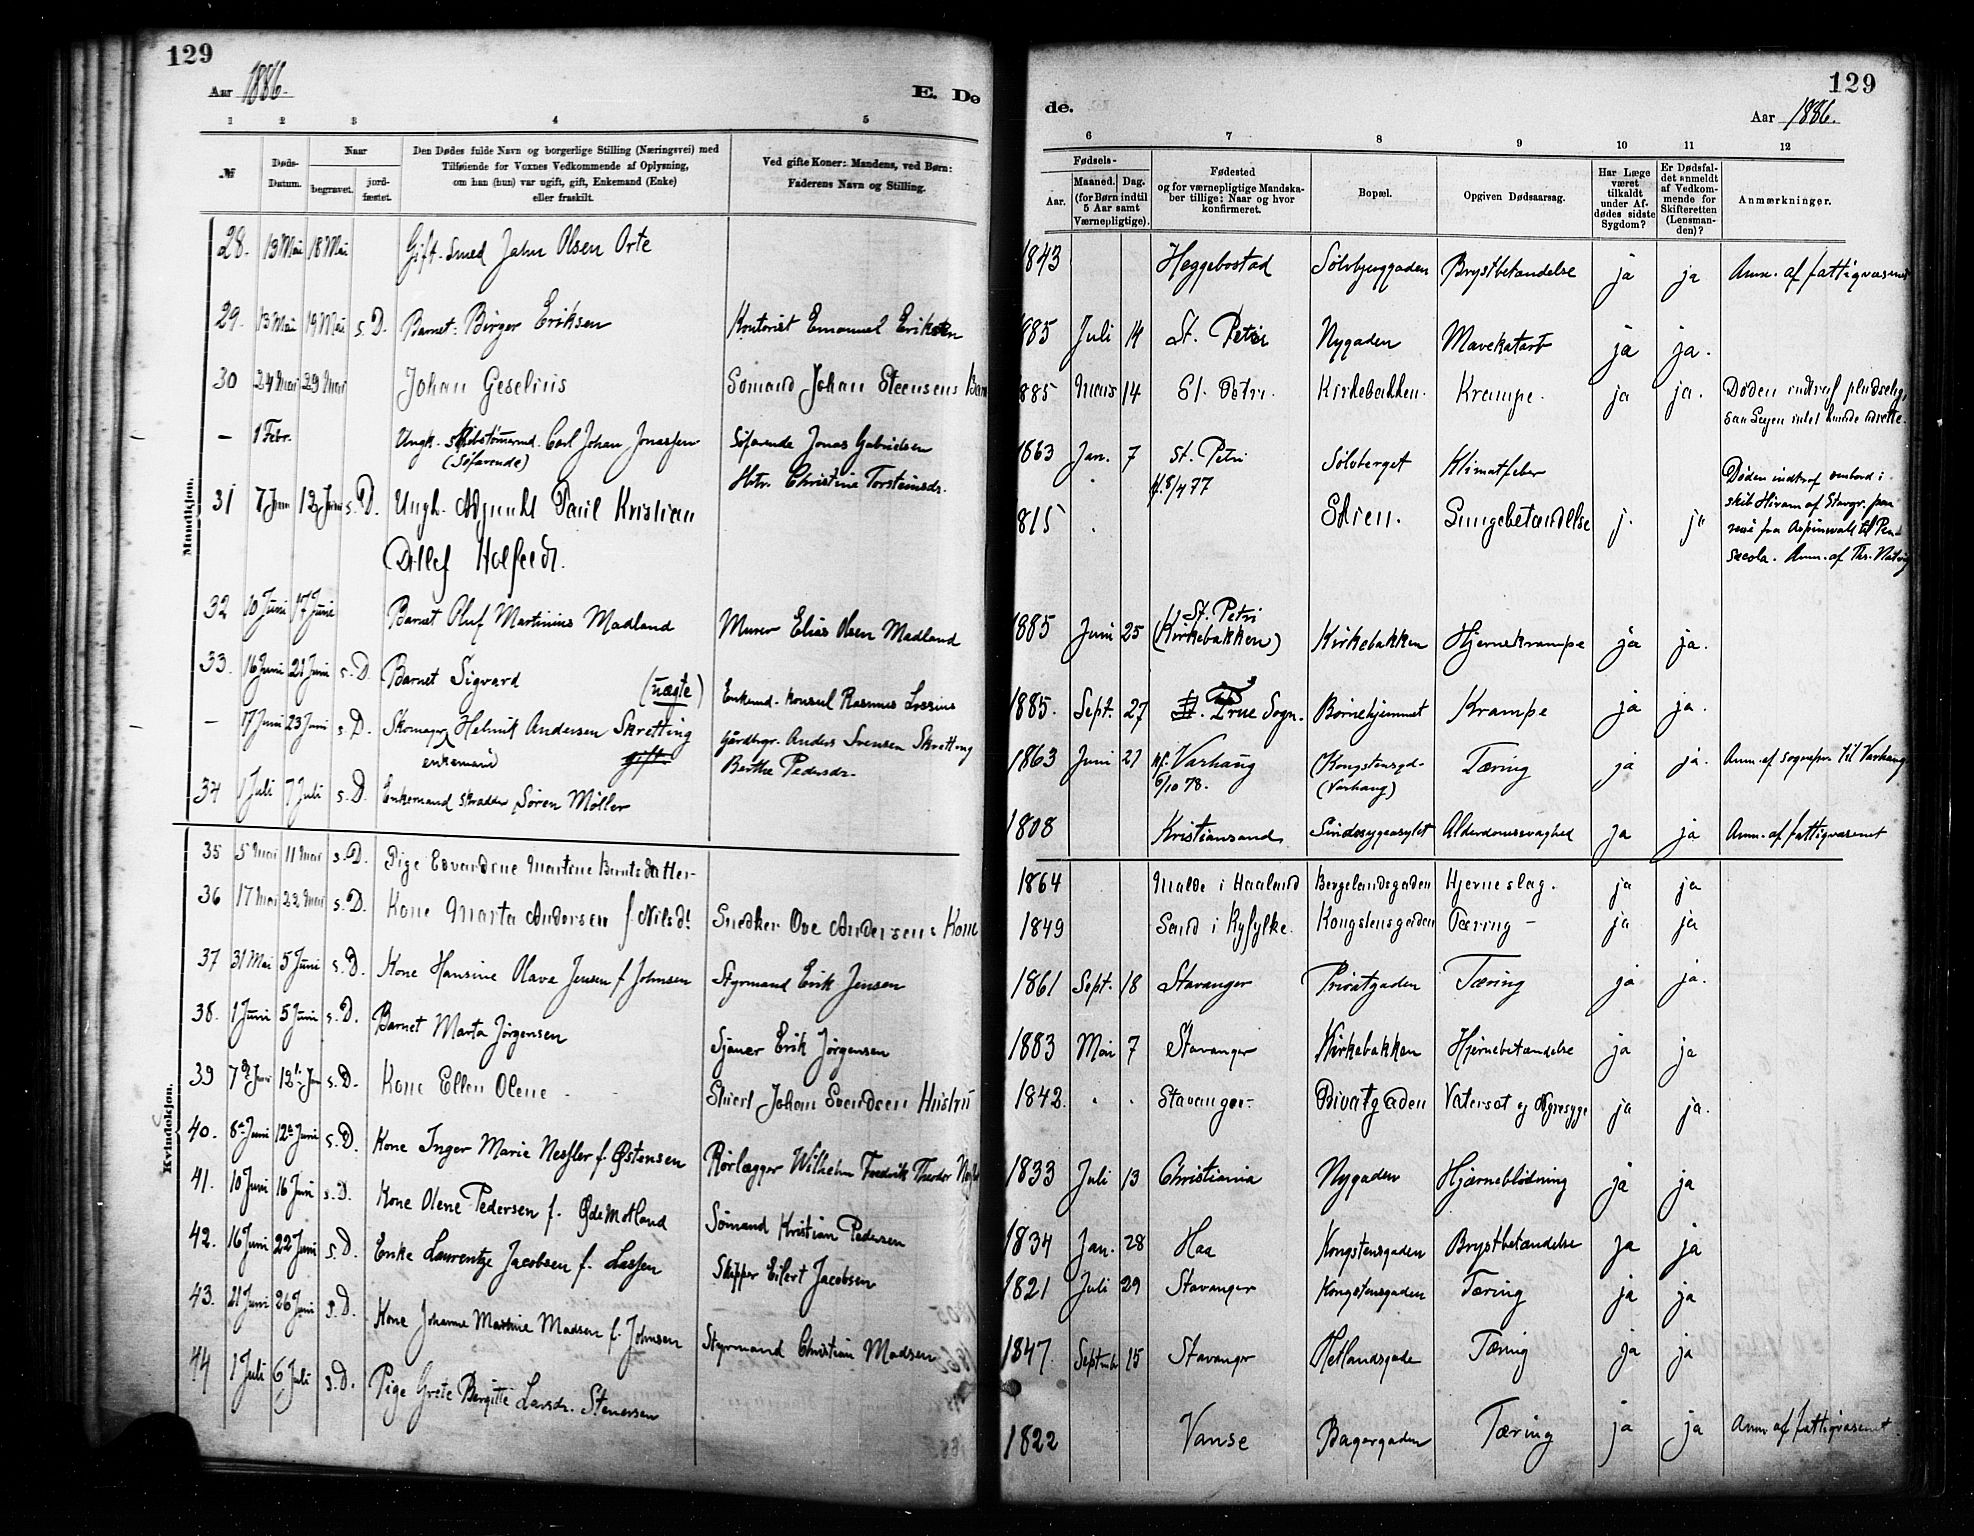 129
Aar 1886.
E. Dø
1 2 3 4 5
№
Døds-Datum.
Naar
begravet.
jord-fæstet.
Den Dødes fulde Navn og borgerlige Stilling (Næringsvei) med
Tilføiende for Voxnes Vedkommende af Oplysning,
om han (hun) var ugift, gift, Enkemand (Enke)
eller fraskilt.
Ved gifte Koner: Mandens, ved Børn:
Faderens Navn og Stilling.
Mandkjøn.
28. 13 Mai 18 Mai Gift. Smed Jahn Olsen Orte
29. 13 Mai 19 Mai s. D. Barnet: Birger Eriksen Kontorist Emanuel Eriksen
30 24 Mai 29 Mai Johan Geselius Sømand Johan Steensens Barn
— 1 Febr. Ungk. Carl Johan Jonassen Søfarende Jonas Gabrielsen
(Søfarende) Hstr. Christine Torsteinsdr.
31 7 Juni 12 Juni s. D. Ungk. Paul Kristian
Ditlef
32 10 Juni 17 Juni Barnet Oluf Martinius Madland Murer Elias Olsen Madland
33. 16 Juni 21 Juni s. D. Barnet Sigvard (uægte) Enkemd. Konsul Rasmus
— 17 Juni 23 Juni s. D. Skomager Helmik Andersen Skretting Gårdbgr. Anders Svensen Skretting
enkemand gift. Berthe Pedersdr.
34 1 Juli 7 Juli s. D. Enkemand skrædder Søren Møller
Kvindekjøn.
35 5 Mai 11 Mai s. D. Pige Edvardine Martine Berntsdatter
36 17 Mai 22 Mai s. D. Kone Marta Andersen f Nilsdt. Snedker Ove Andersens Kone
37 31 Mai 5 Juni s. D. Kone Hansine Olava Jensen f. Johnsen Styrmand Erik Jensen
38. 1 Juni 5 Juni s. D. Barnet Marta Jørgensen Sjauer Erik Jørgensen
39 7de Juni 12te Jun s. D. Kone Ellen Olene Johan Svendsen Hustru
40. 8de Juni 12te Juni s. D. Kone Inger Marie Nessler f. Østensen Rørlægger Wilhelm Fredrik Theodor
41. 10 Juni 16 Juni s. D. Kone Olene Pedersen f. Ødemotland Sømand Kristian Pedersen
42. 16 Juni 22 Juni s. D. Enke Laurentze Jacobsen f. Lassen Skipper Eilert Jacobsen
43. 21 Juni 26 Juni s. D. Kone Johanne Martine Madsen f. Johnsen Styrmand Christian Madsen
44 1 Juli 6 Juli s. D. Pige Grete Bergitte Larsdr. Stenersen
129
de.
Aar 1886.
6 7 8 9 10 11 12
Fødsels-
Aar.
Maaned. Dag.
(for Børn indtil
5 Aar samt
Værnepligtige).
Fødested
og for værnepligtige Mandska-
ber tillige: Naar og hvor
konfirmeret.
Bopæl.
Opgiven Dødsaarsag.
Har Læge
været
tilkaldt
under Af-
dødes sidste
Sygdom?
Er Dødsfal-
det anmeldt
af Vedkom-
mende for
Skifteretten
(Lensman-
den)?
Anmærkninger.
1843 Heggebostad Sølvbjerggaden Brystbetændelse ja ja Anm. af fattigvæsenet
1885 Juli 14 St. Petri Nygaden Mavekatarr ja ja.
1885 Mars 14 St. Petri. Kirkebakken. Krampe. ja ja. Døden indtraf pludselig,
saa Lægen intet kunde udrette.
1863 Jan. 7 St. Petri Sølvberget Klimatfeber
kf. 8/4 77
Døden indtraf ombord i
skib Hiram af Stavgr. paa
reise fra Aspinwall til Pen-
sacola. Anm. af
1815 Lungebetændelse j. ja
1885 Juni 25 St. Petri
(Kirkebakken) Kirkebakken Hjernekrampe ja ja.
1885. Sept. 27 Frue Sogn. Børnehjemmet Krampe ja ja.
1863 Juni 27 kf. Varhaug (Kongstensgd- Tæring ja ja. Anm. af sognepr. til Varhaug
6/10 78. (Varhaug)
1808 Kristianssand Sindssygeasylet Alderdomssvaghed ja ja Anm. af fattigvæsenet
1864 Malde i Haaland Bergelandsgaden Hjerneslag. ja ja
1849 Sand i Ryfylke. Kongstensgaden Tæring — ja ja
1861 Sept. 18 Stavanger Privatgaden Tæring ja ja.
1883 Mai 7 Stavanger Kirkebakken Hjernebetændelse ja ja
1842. Stavanger- Privatgaden Vatersot og Nyresyge ja ja.
1833 Juli 13 Christiania Nygaden Hjærneblødning ja ja
1834 Jan. 28 Haa Kongstensgaden Brystbetændelse ja ja
1821 Juli 29 Stavanger Kongstensgaden Tæring ja ja
1847. September 15 Stavanger Hetlandsgade Tæring ja ja
1822 Vanse Bagergaden Tæring ja ja Anm. af fattigvæsenet